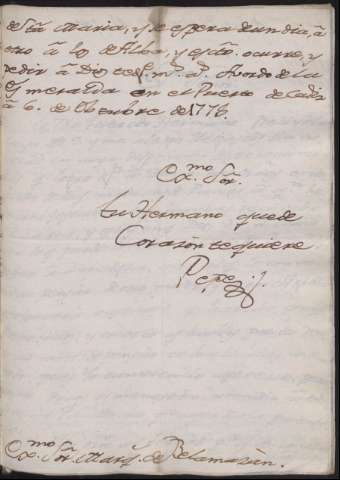 de Sta Maria, y se espera de un dia, â
otro â los de Alba, y es qto. ocurre, y
pedir â Dios gue. ms. as. Abordo de la
Esmeralda en el Puerto de Cadiz
â 6. de Obtubre de 1776.
Exmo Sor.
tu Hermano que de
Corazon te quiere
Pepe
Exmo Sor. Marqs. de Belamazan.